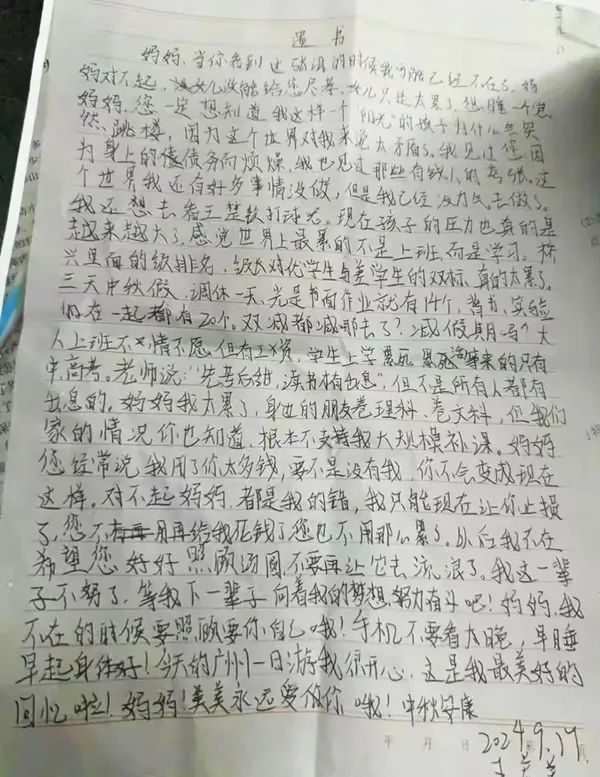 遗书
妈妈,当你看到这封信的时候我可能已经不在了,妈
妈对不起,女儿没能给您尽孝,女儿只是太累了,想睡一个觉
妈妈,您一定想知道我这样一个“阳光”的孩子为什么会突
然跳楼,因为这个世界对我来说太矛盾了。我见过您因
为身上的债务而烦燥,我也见过那些有钱人的夸张,这
个世界我还有好多事情没做,但是我已经没力气去做了。
我还想去看三楚钦打球。现在孩子的压力也真的是
越来越大了,感觉世界上最累的不是上班,而是学习。
兴里面的级排名、级长对优学生与差学生的双标,真的太累了。
三天中秋假,调休一天,光是书面作业就有14个,背书、实验
加在一起都有20个。双减都减哪去了?减假期吗?大
人上班不情不愿,但有工资,学生上学累死累死等来的只有
中高考。老师说:“先苦后甜,读书才有出息”,但不是所有人都有
出息的。妈妈我太累了,身边的朋友卷理科、卷文科,但我们
家的情况你也知道,根本不支持我大规模补课。妈妈
您经常说我用了你太多钱,要不是没有我,你不会变成现在
这样。对不起妈妈,都是我的错,我只能现在让你止损
了,您不用再给我花钱了您也不用那么累了。以后我不在
希望您好好照顾汤圆,不要再让它去流浪了。我这一辈
子不努了,等我下一辈子向着我的梦想努力奋斗吧!妈妈,我
不在的时候要照顾要你自己哦!手机不要看太晚,早睡
早起身体好!今天的广州一日游我很开心,这是我最美好的
回忆啦!妈妈!美美永远爱你,哦!中秋安康
2024.9.17
年 月 日 第 页